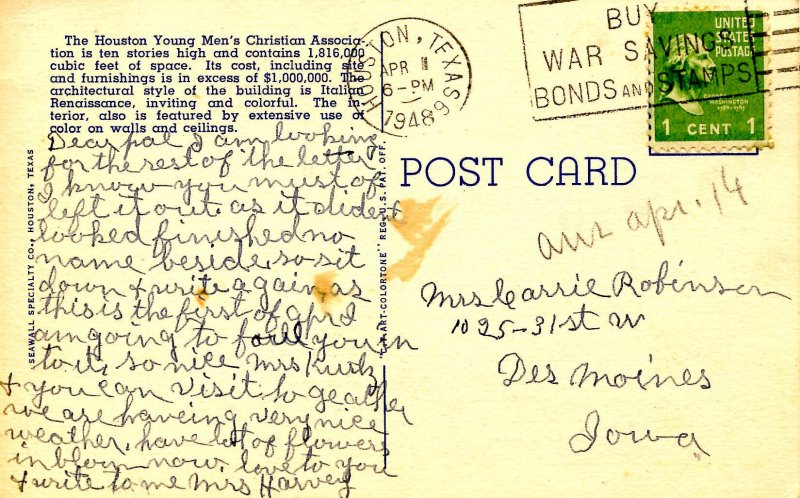 The Houston Young Men's Christian Associa-
tion is ten stories high and contains 1,816,000
cubic feet of space. Its cost, including site
and furnishings is in excess of $1,000,000. The
architectural style of the building is Italian
Renaissance, inviting and colorful. The in-
terior, also is featured by extensive use of
color on walls and ceilings.
Dear pal I am looking
for the rest of the letter
I know you must of
left it out as it dident
looked finished no
name beside, so sit
down + write again, as
this is the first of apr I
am going to fall you in
to it, so nice Mrs Kurk
+ you can visit to geather
we are haveing very nice
weather, have lot of flowers
in blom now love to you
+ write to me Mrs Harvey
SEAWALL SPECIALTY CO., HOUSTON, TEXAS
"C.T. ART-COLORTONE" REG. U.S. PAT. OFF.
HOUSTON, TEXAS
APR
6-PM
1948
BUY
WAR SAVINGS
BONDS AND STAMPS
UNITED
STATES
POSTAGE
GEORGE
WASHINGTON
1789-1797
1 CENT 1
POST CARD
ans apr. 14
Mrs Carrie Robinson
1025-31st W
Des Moines
Iowa